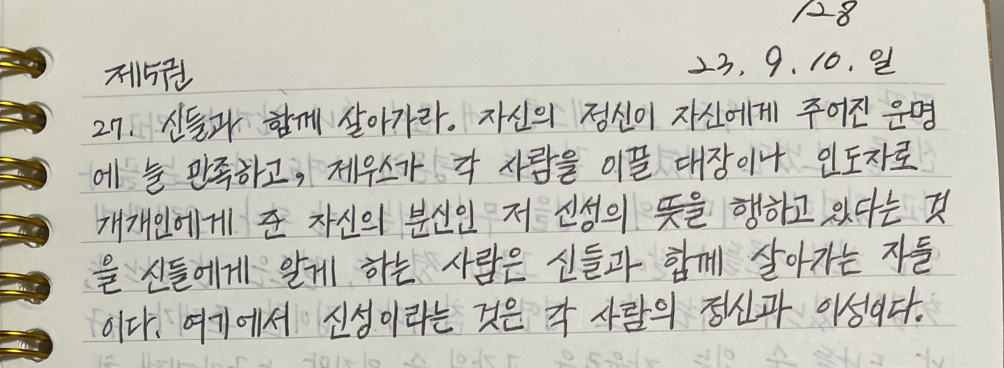 128
제5권 23. 9. 10. 일
27. 신들과 함께 살아가라. 자신의 정신이 자신에게 주어진 운명
에 늘 만족하고, 제우스가 각 사람을 이끌 대장이나 인도자로
개개인에게 준 자신의 분신인 저 신성의 뜻을 행하고 있다는 것
을 신들에게 알게 하는 사람은 신들과 함께 살아가는 자들
이다. 여기에서 신성이라는 것은 각 사람의 정신과 이성이다.